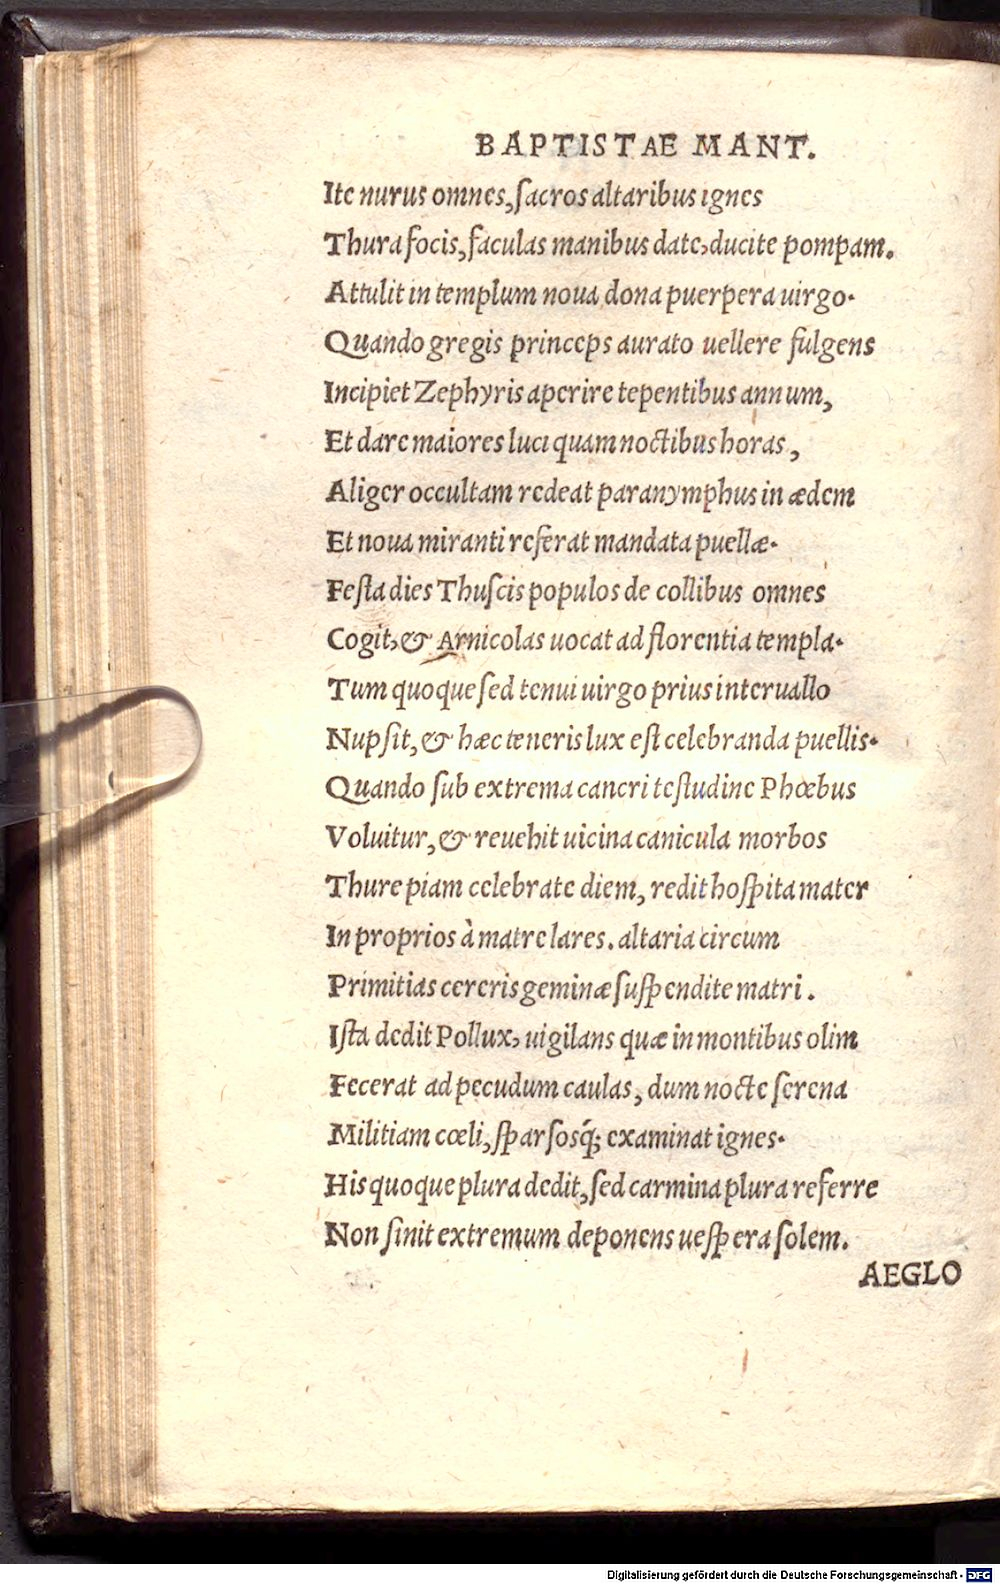 BAPTISTAE MANT.
Ite nurus omnes, ſacros altaribus ignes
Thura focis, faculas manibus date, ducite pompam.
Attulit in templum noua dona puerpera uirgo.
Quando gregis princeps aurato uellere fulgens
Incipiet Zephyris aperire tepentibus annum,
Et dare maiores luci quam noctibus horas,
Aliger occultam redeat paranymphus in ædem
Et noua miranti referat mandata puellæ.
Feſta dies Thuſcis populos de collibus omnes
Cogit, & Arnicolas uocat ad florentia templa.
Tum quoque ſed tenui uirgo prius interuallo
Nupſit, & hæc teneris lux eſt celebranda puellis.
Quando ſub extrema cancri teſtudine Phœbus
Voluitur, & reuehit uicina canicula morbos
Thure piam celebrate diem, redit hoſpita mater
In proprios à matre lares. altaria circum
Primitias cereris geminæ ſuſpendite matri.
Iſta dedit Pollux, uigilans quæ in montibus olim
Fecerat ad pecudum caulas, dum nocte ſerena
Militiam cœli, ſparſosq́; examinat ignes.
His quoque plura dedit, ſed carmina plura referre
Non ſinit extremum deponens ueſpera ſolem.
AEGLO
Digitalisierung gefördert durch die Deutsche Forschungsgemeinschaft - DFG